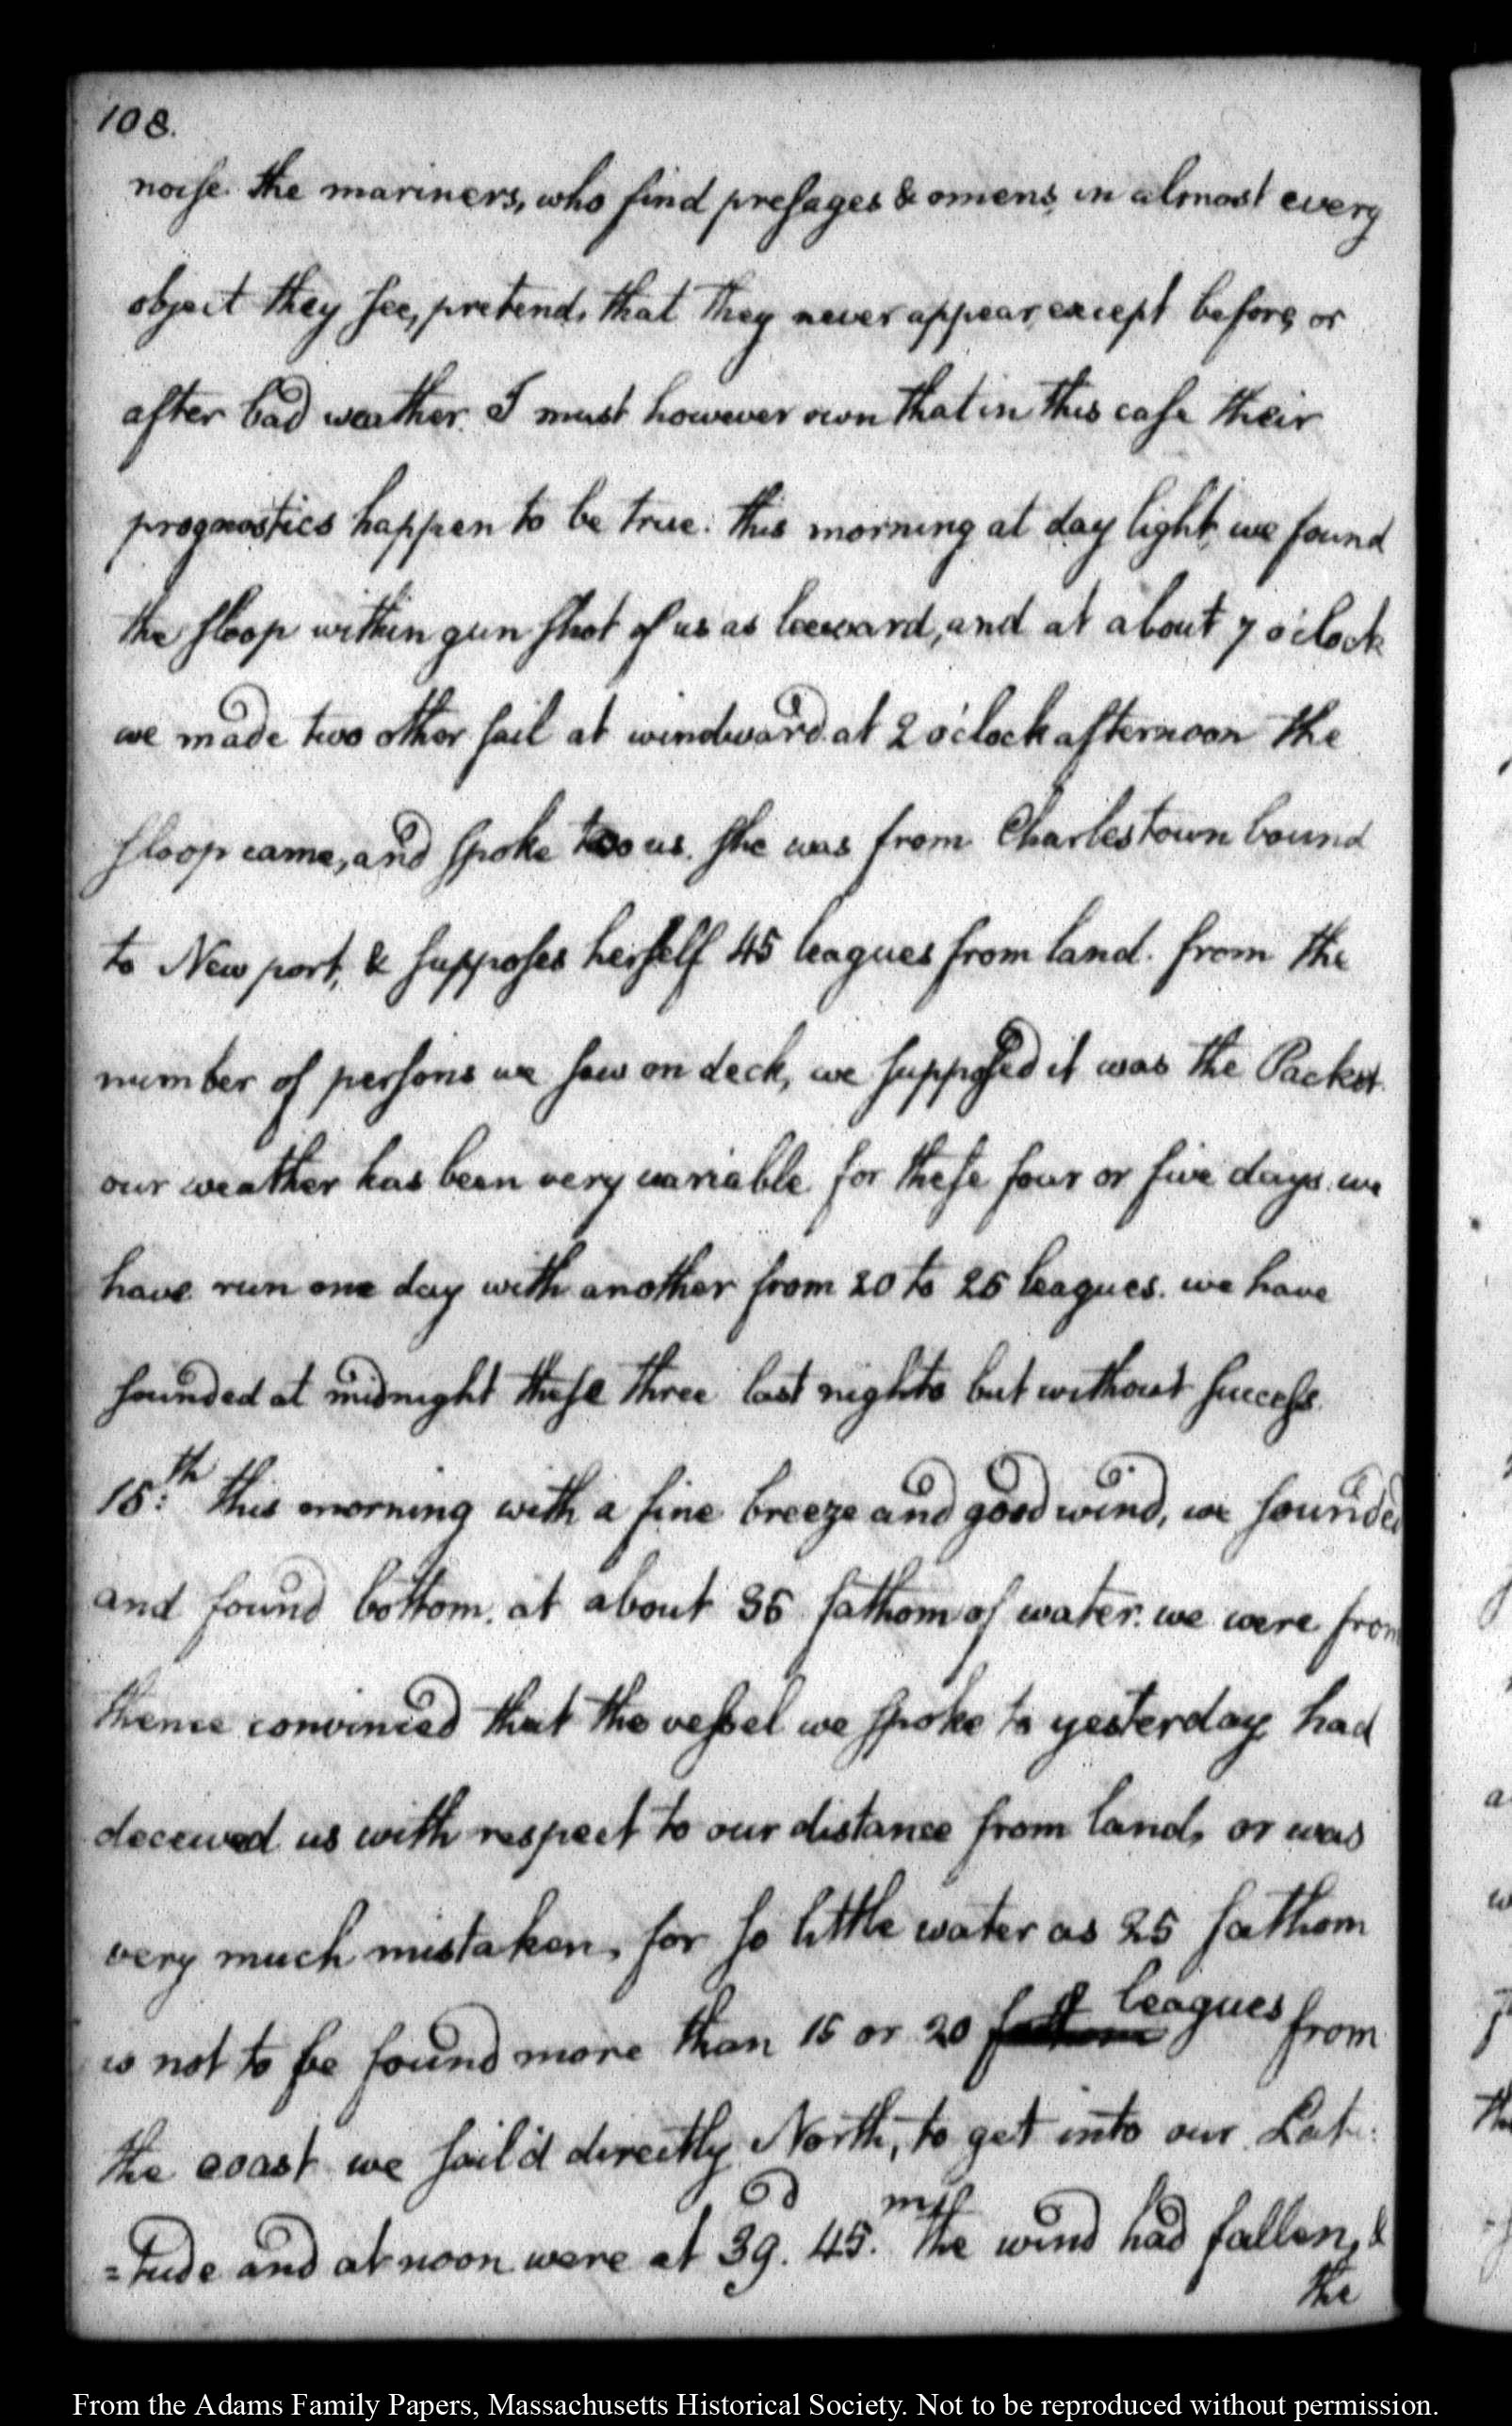 108.
noise. the mariners, who find presages & omens, in almost every
object they see, pretend, that they never appear, except before, or
after bad weather. I must however own that in this case their
prognostics happen to be true. this morning at day light we found
the sloop within gun shot of us as leeward, and at about 7 o'clock
we made two other sail at windward. at 2 o'clock afternoon the
sloop came, and spoke too us. she was from Charlestown bound
to New port, & supposes herself 45 leagues from land. from the
number of persons we saw on deck, we supposed it was the Packet.
our weather has been very variable for these four or five days. we
have run one day with another from 20 to 25 leagues. we have
sounded at midnight these three last nights but without success.
15:th this morning with a fine breeze and good wind, we sounded
and found bottom. at about 35 fathom of water. we were from
thence convinced that the vessel we spoke to yesterday had
deceived us with respect to our distance from land, or was
very much mistaken, for so little water as 25 fathom
is not to be found more than 15 or 20 fathom leagues from
the coast we sail'd directly North, to get into our Lati:
=tude and at noon were at 39.d 45.m the wind had fallen, &
the
From the Adams Family Papers, Massachusetts Historical Society. Not to be reproduced without permission.